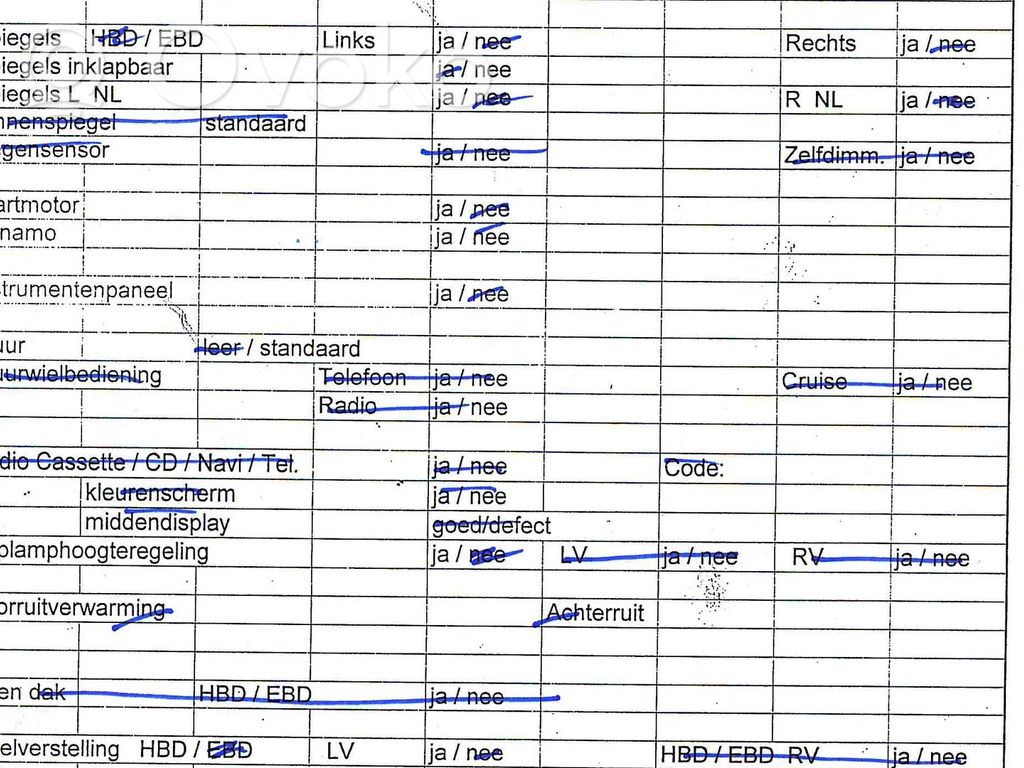 iegels HBD / EBD Links ja / nee Rechts ja / nee
iegels inklapbaar ja / nee
iegels L NL ja / nee R NL ja / nee
nnenspiegel standaard
gensensor ja / nee Zelfdimm. ja / nee
artmotor ja / nee
namo ja / nee
strumentenpaneel ja / nee
uur leer / standaard
uurwielbediening Telefoon ja / nee Cruise ja / nee
Radio ja / nee
dio Cassette / CD / Navi / Tel. ja / nee Code:
kleurenscherm ja / nee
middendisplay goed/defect
plamphoogteregeling ja / nee LV ja / nee RV ja / nee
orruitverwarming Achterruit
en dak HBD / EBD ja / nee
elverstelling HBD / EBD LV ja / nee HBD / EBD RV ja / nee